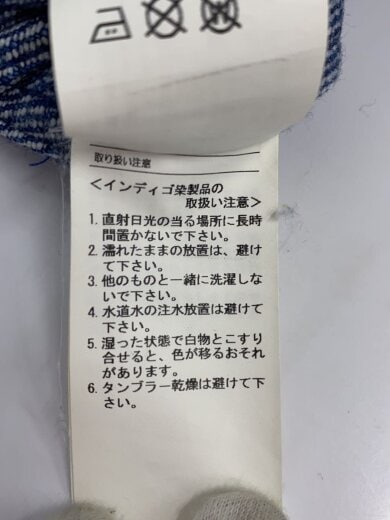 取り扱い注意
＜インディゴ染製品の
取扱い注意＞
1. 直射日光の当る場所に長時
間置かないで下さい。
2. 濡れたままの放置は、避け
て下さい。
3. 他のものと一緒に洗濯しな
いで下さい。
4. 水道水の注水放置は避けて
下さい。
5. 湿った状態で白物とこすり
合せると、色が移るおそれ
があります。
6. タンブラー乾燥は避けて下
さい。